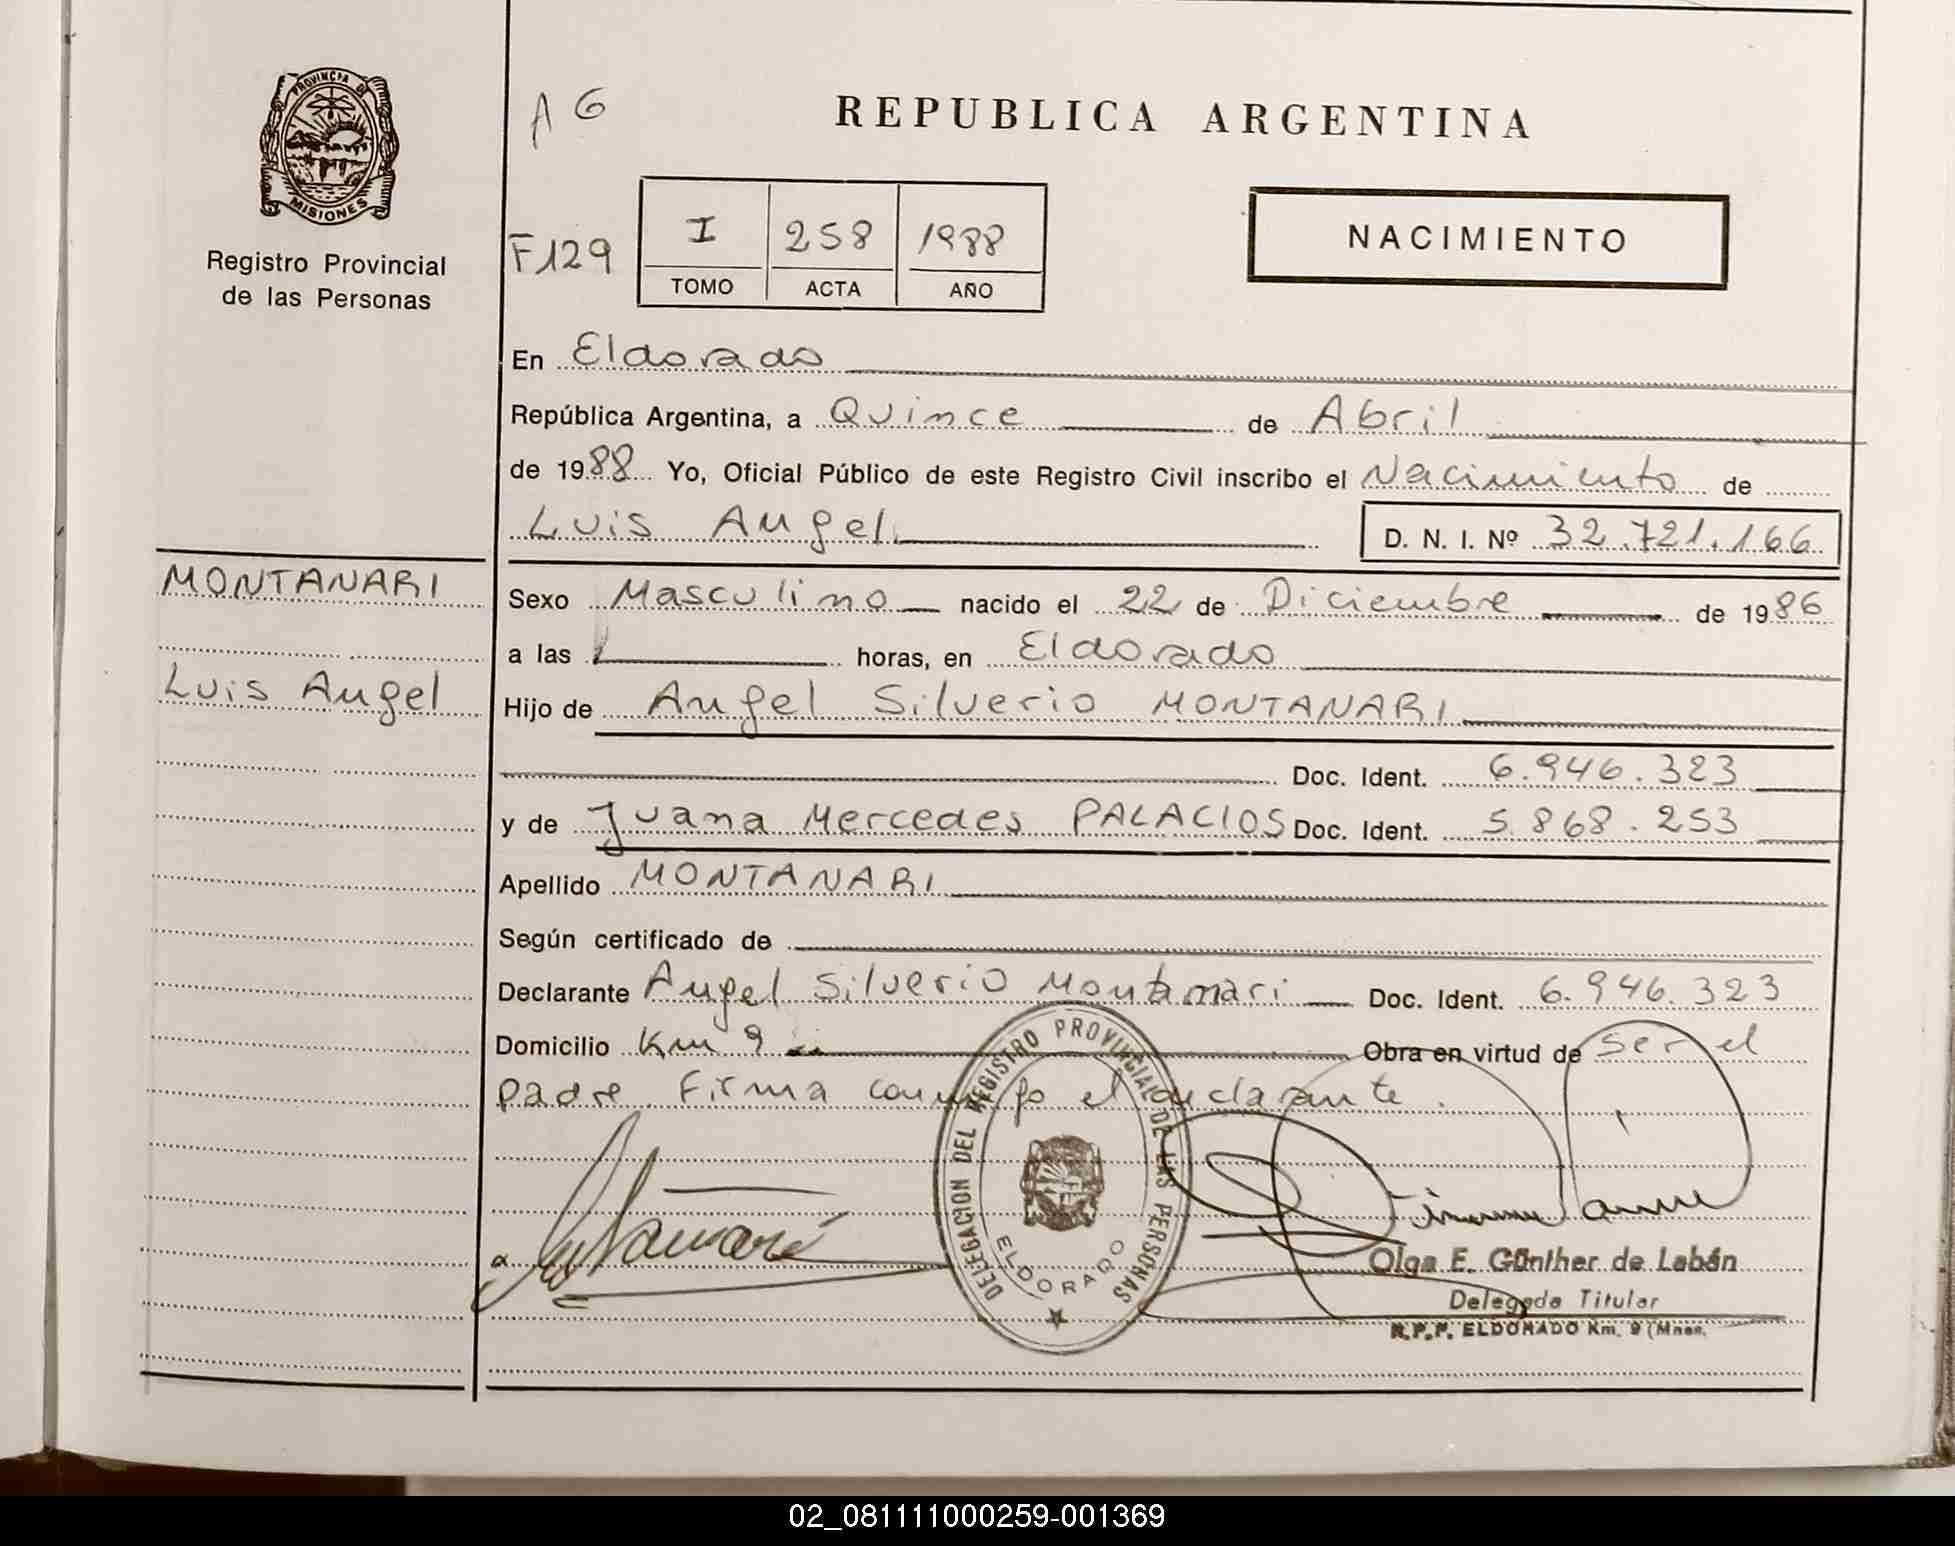 PROVINCIA DE
MISIONES
Registro Provincial
de las Personas
A 6
REPUBLICA ARGENTINA
F129
I 258 1988
TOMO ACTA AÑO
NACIMIENTO
En Eldorado
República Argentina, a Quince de Abril
de 1988 Yo, Oficial Público de este Registro Civil inscribo el Nacimiento de
Luis Angel D. N. I. Nº 32.721.166
MONTANARI
Luis Angel
Sexo Masculino nacido el 22 de Diciembre de 1986
a las horas, en Eldorado
Hijo de Angel Silverio MONTANARI
Doc. Ident. 6.946.323
y de Juana Mercedes PALACIOS Doc. Ident. 5.868.253
Apellido MONTANARI
Según certificado de
Declarante Angel Silverio Montanari Doc. Ident. 6.946.323
Domicilio Km 9 Obra en virtud de ser el
padre. Firma conmigo el declarante.
DELEGACION DEL REGISTRO PROVINCIAL DE LAS PERSONAS
ELDORADO
Olga E. Günther de Labán
Delegada Titular
R.P.P. ELDORADO Km. 9 (Mnes.
02_081111000259-001369